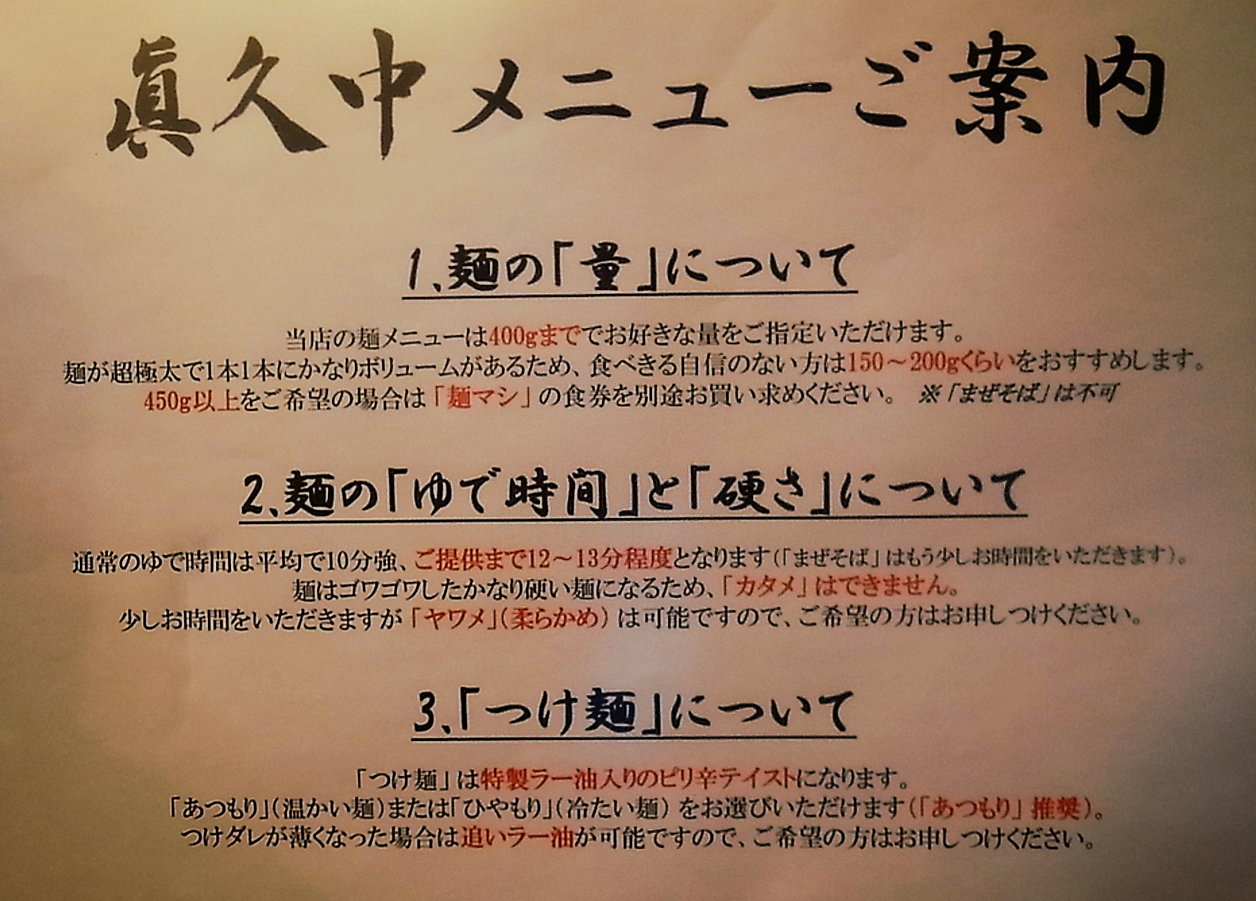 眞久中メニューご案内
1、麺の「量」について
当店の麺メニューは400gまででお好きな量をご指定いただけます。
麺が超極太で1本1本にかなりボリュームがあるため、食べきる自信のない方は150～200gくらいをおすすめします。
450g以上をご希望の場合は「麺マシ」の食券を別途お買い求めください。 ※「まぜそば」は不可
2、麺の「ゆで時間」と「硬さ」について
通常のゆで時間は平均で10分強、ご提供まで12～13分程度となります(「まぜそば」はもう少しお時間をいただきます)。
麺はゴワゴワしたかなり硬い麺になるため、「カタメ」はできません。
少しお時間をいただきますが「ヤワメ」(柔らかめ)は可能ですので、ご希望の方はお申しつけください。
3、「つけ麺」について
「つけ麺」は特製ラー油入りのピリ辛テイストになります。
「あつもり」(温かい麺)または「ひやもり」(冷たい麺)をお選びいただけます(「あつもり」推奨)。
つけダレが薄くなった場合は追いラー油が可能ですので、ご希望の方はお申しつけください。